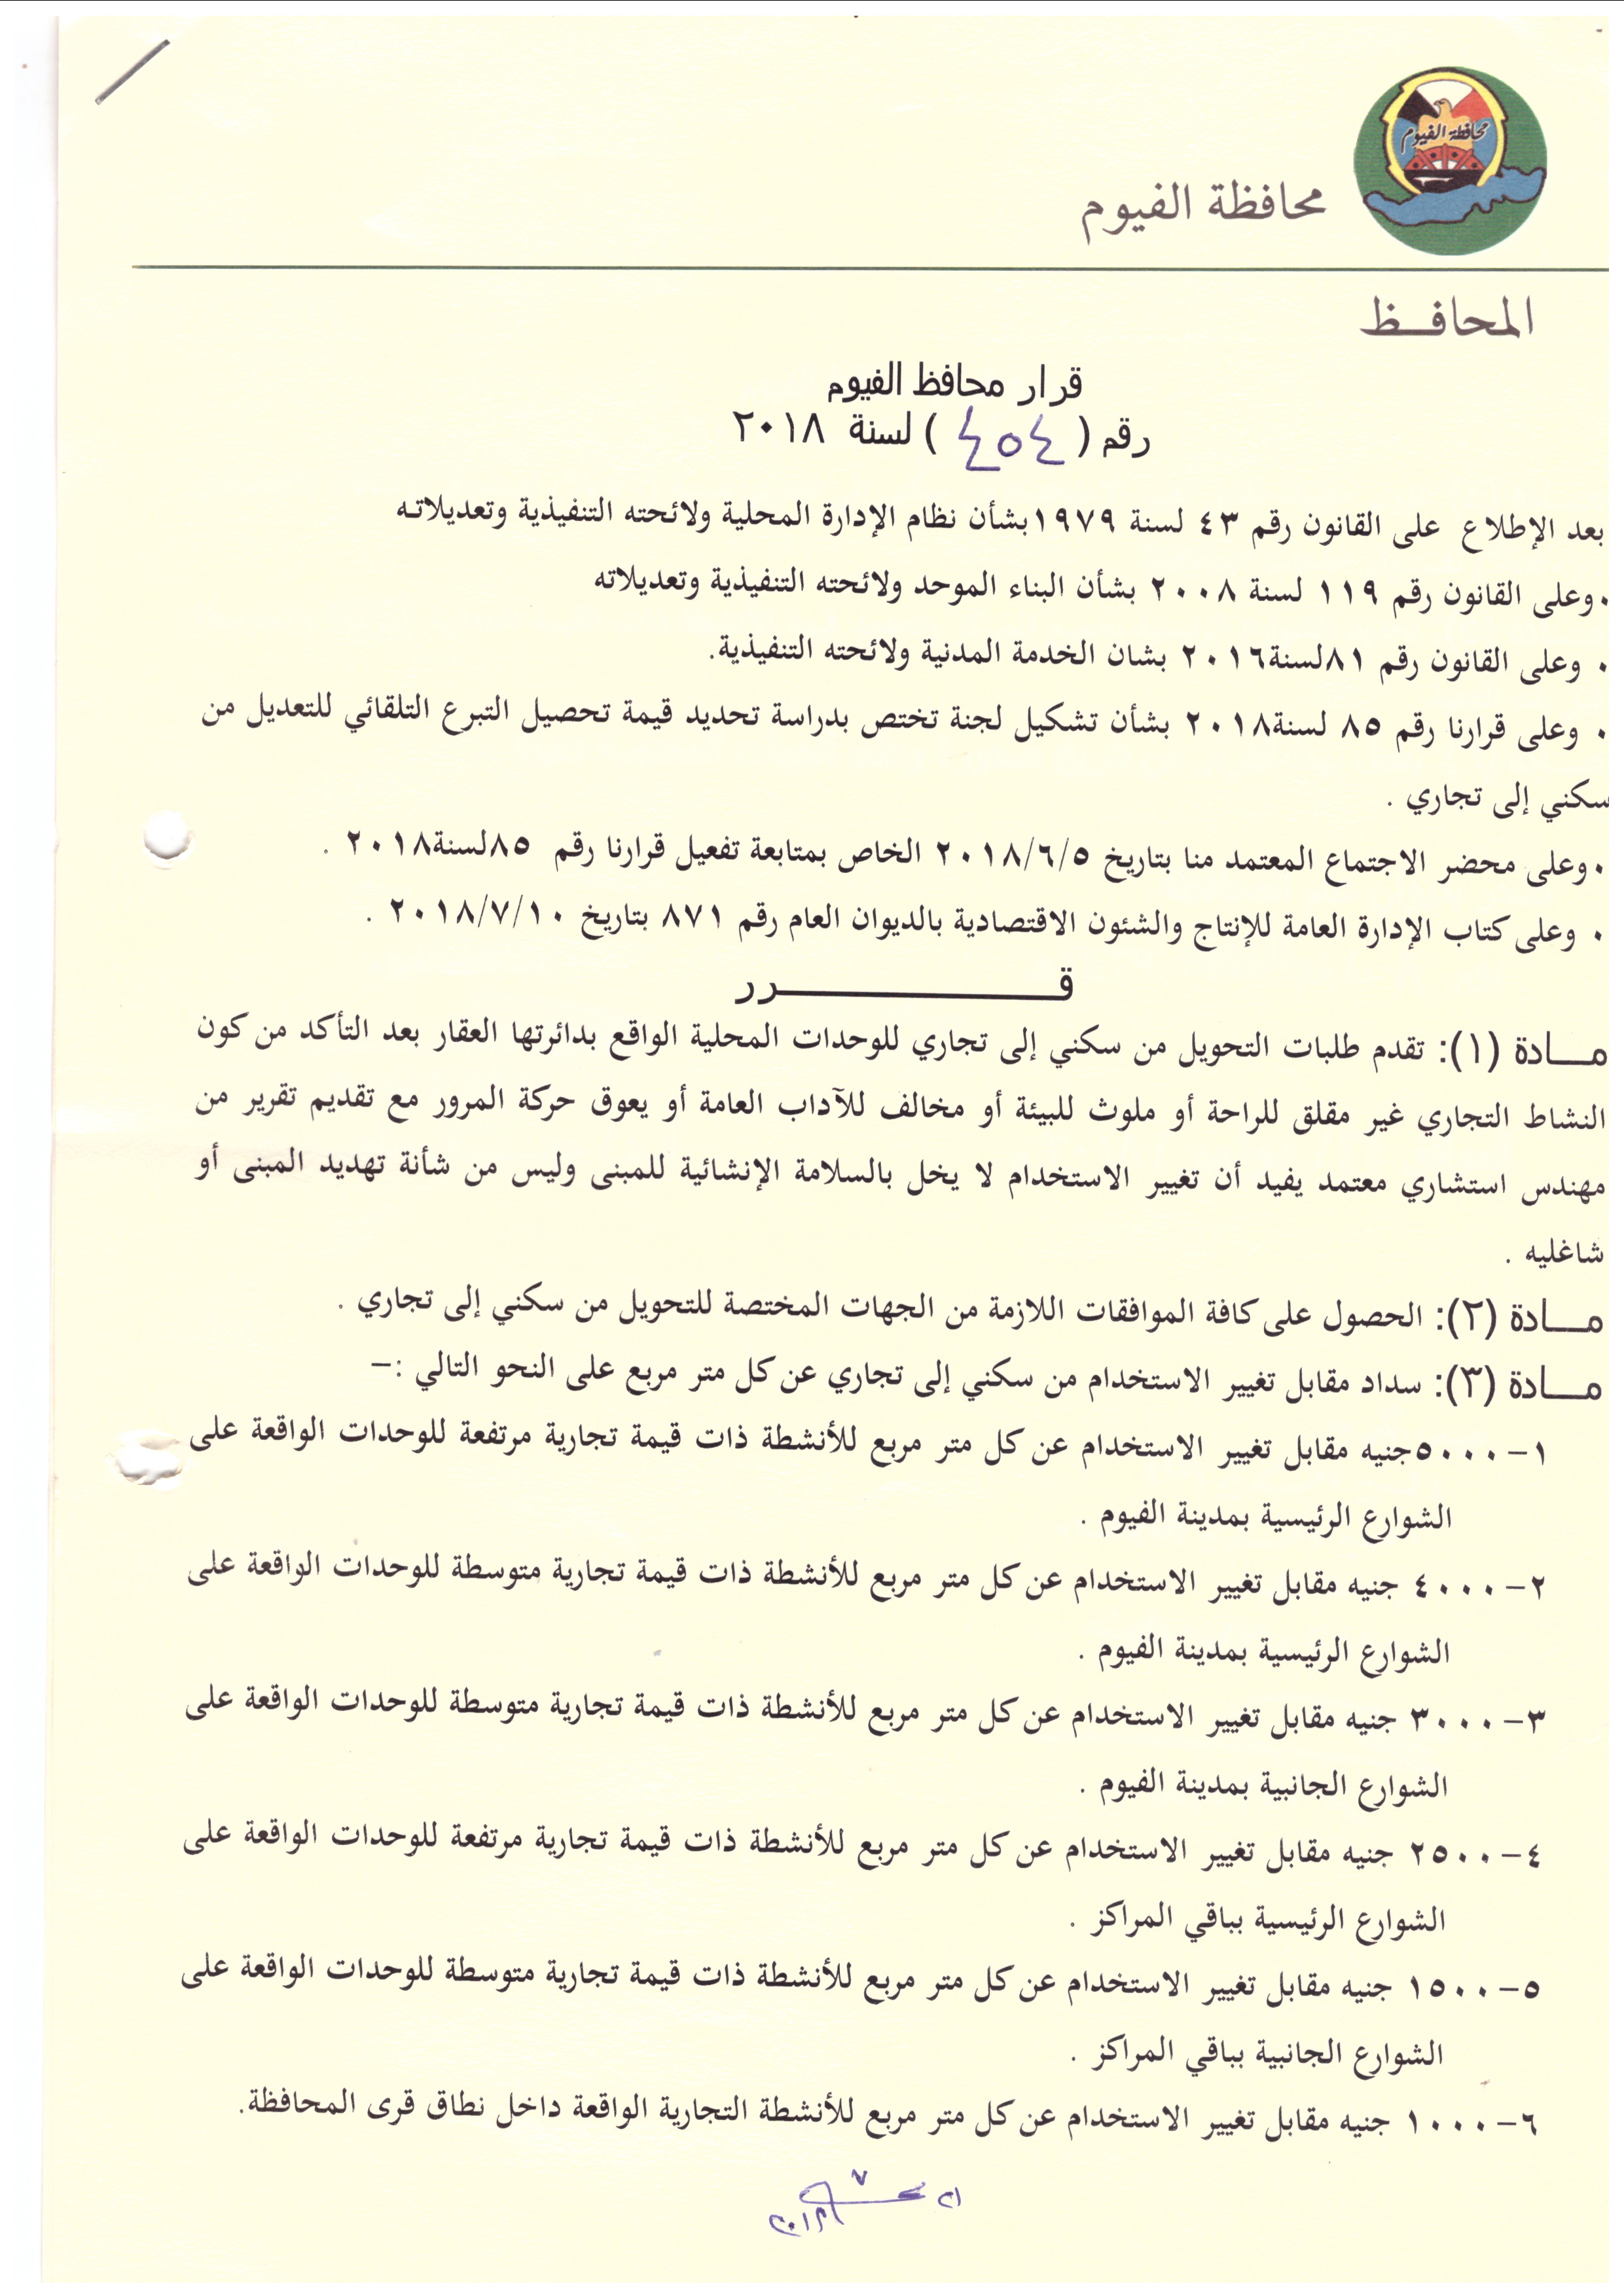 محافظة الفيوم
محافظة الفيوم
المحافــظ
قرار محافظ الفيوم
رقم ( ٤٥٤ ) لسنة ٢٠١٨
بعد الإطلاع على القانون رقم ٤٣ لسنة ١٩٧٩بشأن نظام الإدارة المحلية ولائحته التنفيذية وتعديلاته
٠وعلى القانون رقم ١١٩ لسنة ٢٠٠٨ بشأن البناء الموحد ولائحته التنفيذية وتعديلاته
٠ وعلى القانون رقم ٨١لسنة٢٠١٦ بشان الخدمة المدنية ولائحته التنفيذية.
٠ وعلى قرارنا رقم ٨٥ لسنة٢٠١٨ بشأن تشكيل لجنة تختص بدراسة تحديد قيمة تحصيل التبرع التلقائي للتعديل من
سكني إلى تجاري .
٠وعلى محضر الاجتماع المعتمد منا بتاريخ ٢٠١٨/٦/٥ الخاص بمتابعة تفعيل قرارنا رقم ٨٥لسنة٢٠١٨ .
٠ وعلى كتاب الإدارة العامة للإنتاج والشئون الاقتصادية بالديوان العام رقم ٨٧١ بتاريخ ٢٠١٨/٧/١٠ .
قــــــــــــرر
مــادة (١): تقدم طلبات التحويل من سكني إلى تجاري للوحدات المحلية الواقع بدائرتها العقار بعد التأكد من كون
النشاط التجاري غير مقلق للراحة أو ملوث للبيئة أو مخالف للآداب العامة أو يعوق حركة المرور مع تقديم تقرير من
مهندس استشاري معتمد يفيد أن تغيير الاستخدام لا يخل بالسلامة الإنشائية للمبنى وليس من شأنة تهديد المبنى أو
شاغليه .
مــادة (٢): الحصول على كافة الموافقات اللازمة من الجهات المختصة للتحويل من سكني إلى تجاري .
مــادة (٣): سداد مقابل تغيير الاستخدام من سكني إلى تجاري عن كل متر مربع على النحو التالي :–
١– ٥٠٠٠جنيه مقابل تغيير الاستخدام عن كل متر مربع للأنشطة ذات قيمة تجارية مرتفعة للوحدات الواقعة على
الشوارع الرئيسية بمدينة الفيوم .
٢– ٤٠٠٠ جنيه مقابل تغيير الاستخدام عن كل متر مربع للأنشطة ذات قيمة تجارية متوسطة للوحدات الواقعة على
الشوارع الرئيسية بمدينة الفيوم .
٣– ٣٠٠٠ جنيه مقابل تغيير الاستخدام عن كل متر مربع للأنشطة ذات قيمة تجارية متوسطة للوحدات الواقعة على
الشوارع الجانبية بمدينة الفيوم .
٤– ٢٥٠٠ جنيه مقابل تغيير الاستخدام عن كل متر مربع للأنشطة ذات قيمة تجارية مرتفعة للوحدات الواقعة على
الشوارع الرئيسية بباقي المراكز .
٥– ١٥٠٠ جنيه مقابل تغيير الاستخدام عن كل متر مربع للأنشطة ذات قيمة تجارية متوسطة للوحدات الواقعة على
الشوارع الجانبية بباقي المراكز .
٦– ١٠٠٠ جنيه مقابل تغيير الاستخدام عن كل متر مربع للأنشطة التجارية الواقعة داخل نطاق قرى المحافظة.